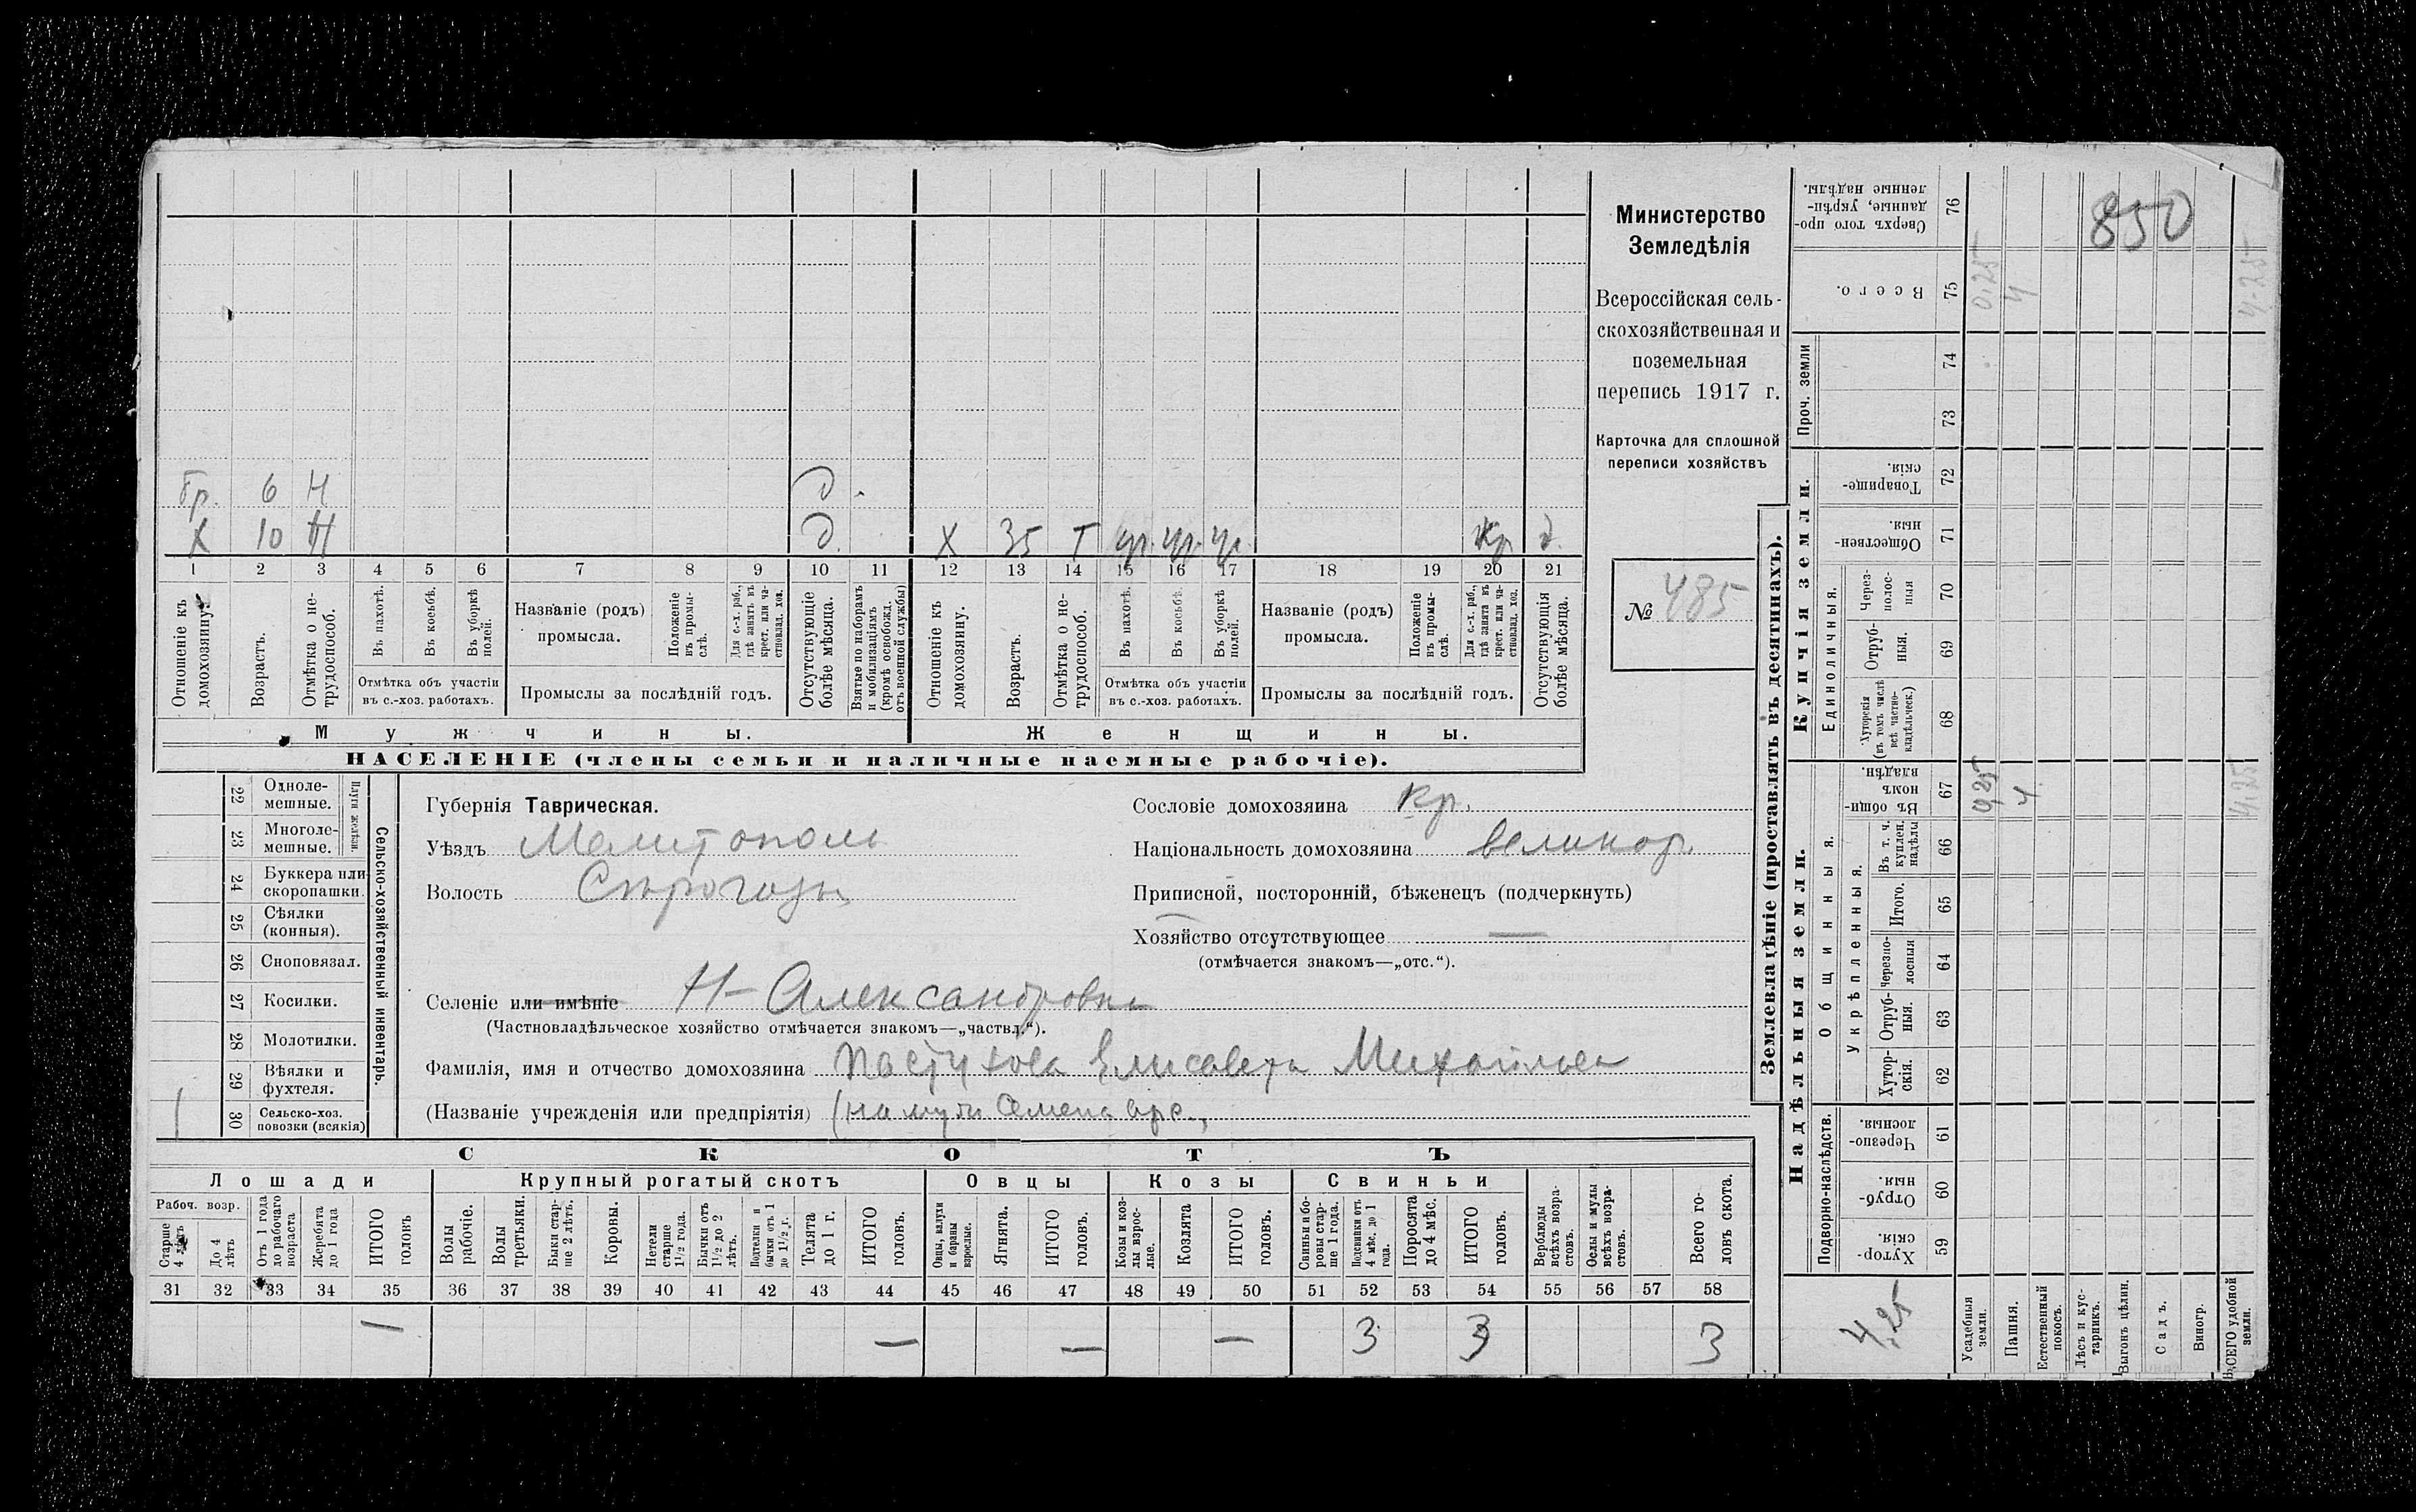 Министерство
Земледѣлія
Всероссійская сель-
скохозяйственная и
поземельная
перепись 1917 г.
Карточка для сплошной
переписи хозяйствъ
№ 485
850
Гр. 6 Н д
Х 10 Н д Х 35 Т Кр д
1 2 3 4 5 6 7 8 9 10 11 12 13 14 15 16 17 18 19 20 21
Отношеніе къ домохозяину.
Возрастъ.
Отмѣтка о не-
трудоспособ.
Въ пахотѣ.
Въ косьбѣ.
Въ уборкѣ полей.
Отмѣтка объ участіи
въ с.-хоз. работахъ.
Названіе (родъ)
промысла.
Положеніе въ промы-
слѣ.
Для с.-х. раб.,
гдѣ занятъ въ
крест. или ча-
стновлад. хоз.
Промыслы за послѣдній годъ.
Отсутствующіе
болѣе мѣсяца.
Взятые по наборамъ
и мобилизаціямъ
(кромѣ освобожд.
отъ военной службы)
Отношеніе къ
домохозяину.
Возрастъ.
Отмѣтка о не-
трудоспособ.
Въ пахотѣ.
Въ косьбѣ.
Въ уборкѣ
полей.
Отмѣтка объ участіи
въ с.-хоз. работахъ.
Названіе (родъ)
промысла.
Положеніе
въ промы-
слѣ.
Для с.-х. раб.,
гдѣ занята въ
крест. или ча-
стновлад. хоз.
Промыслы за послѣдній годъ.
Отсутствующія
болѣе мѣсяца.
Мужчины.
Женщины.
НАСЕЛЕНІЕ (члены семьи и наличные наемные рабочіе).
22 Одноле-
мешные.
23 Многоле-
мешные.
Плуги желѣзн.
24 Буккера или
скоропашки.
25 Сѣялки
(конныя).
26 Сноповязал.
27 Косилки.
28 Молотилки.
29 Вѣялки и
фухтеля.
1 30 Сельско-хоз.
повозки (всякія)
Сельско-хозяйственный инвентарь.
Губернія Таврическая.
Уѣздъ Мелитополь
Волость Сѣрогозы
Сословіе домохозяина Кр.
Національность домохозяина великор.
Приписной, посторонній, бѣженецъ (подчеркнуть)
Хозяйство отсутствующее —
(отмѣчается знакомъ—„отс.“).
Селеніе или имѣніе Н-Александровка
(Частновладѣльческое хозяйство отмѣчается знакомъ—„частвл.“).
Фамилія, имя и отчество домохозяина Пастухова Елисавета Михайлова
(Названіе учрежденія или предпріятія)
СКОТЪ
Лошади
Рабоч. возр.
Старше
4 лѣтъ
До 4
лѣтъ
Отъ 1 года
до рабочаго
возраста
Жеребята
до 1 года
ИТОГО
головъ
Крупный рогатый скотъ
Волы
рабочіе.
Волы
третьяки.
Быки стар-
ше 2 лѣтъ.
Коровы.
Нетели
старше
1½ года.
Бычки отъ
1½ до 2
лѣтъ.
Подтелки и
бычки отъ 1
до 1½ г.
Телята
до 1 г.
ИТОГО
головъ.
Овцы
Овцы, валухи
и бараны
взрослые.
Ягнята.
ИТОГО
головъ.
Козы
Козы и коз-
лы взрос-
лые.
Козлята
ИТОГО
головъ.
Свиньи
Свиньи и бо-
ровы стар-
ше 1 года.
Подсвинки отъ
4 мѣс. до 1
года.
Поросята
до 4 мѣс.
ИТОГО
головъ.
Верблюды
всѣхъ возра-
стовъ.
Ослы и мулы
всѣхъ возра-
стовъ.
Всего го-
ловъ скота.
31 32 33 34 35 36 37 38 39 40 41 42 43 44 45 46 47 48 49 50 51 52 53 54 55 56 57 58
— — — — 3 3 3
Землевладѣніе (проставлять въ десятинахъ).
Сверхъ того про-
данные, укрѣп-
ленные надѣлы.
76
Всего.
75 0,25 4 4-25
Проч. земли
74
73
Купчія земли.
Товарище-
скія.
72
Обществен-
ныя.
71
Единоличныя.
Через-
полос-
ныя
70
Отруб-
ныя.
69
Хуторскія
(въ томъ числѣ
всѣ частно-
владѣльческ.)
68
Надѣльныя земли.
Общинныя.
Въ общин-
номъ
владѣн.
67 0,25 4 4,25
Укрѣпленныя.
Въ т. ч.
куплен.
надѣлы
66
Итого.
65
Черезпо-
лосныя
64
Отруб-
ныя.
63
Хутор-
скія.
62
Подворно-наслѣдств.
Черезпо-
лосныя
61
Отруб-
ныя.
60
Хутор-
скія.
59
4,25
Усадебныя
земли.
Пашня.
Естественный
покосъ.
Лѣсъ и кус-
тарникъ.
Выгонъ цѣлин.
Садъ.
Виногр.
ВСЕГО удобной
земли.